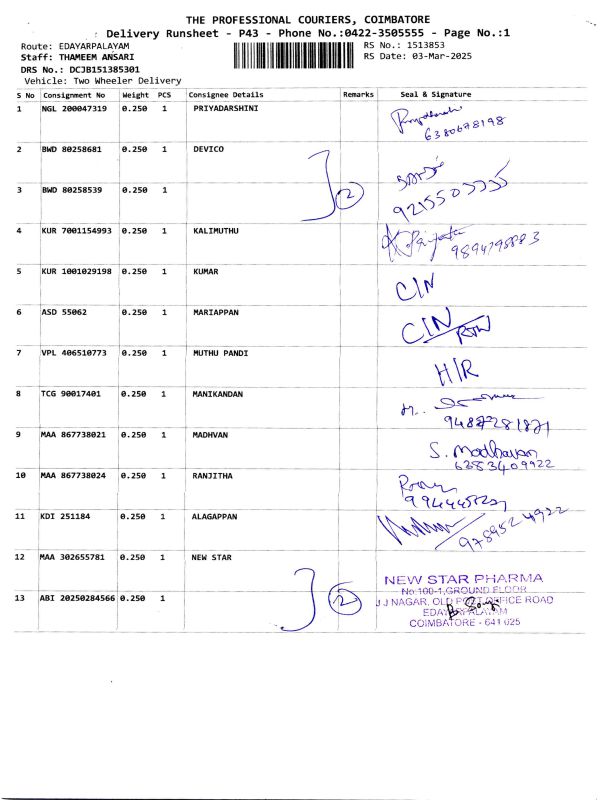 THE PROFESSIONAL COURIERS, COIMBATORE
Delivery Runsheet - P43 - Phone No.:0422-3505555 - Page No.:1
Route: EDAYARPALAYAM RS No.: 1513853
Staff: THAMEEM ANSARI RS Date: 03-Mar-2025
DRS No.: DCJB151385301
Vehicle: Two Wheeler Delivery
S No Consignment No Weight PCS Consignee Details Remarks Seal & Signature
1 NGL 200047319 0.250 1 PRIYADARSHINI
6380678198
2 BWD 80258681 0.250 1 DEVICO
2
3 BWD 80258539 0.250 1
4 KUR 7001154993 0.250 1 KALIMUTHU
5 KUR 1001029198 0.250 1 KUMAR C/N
6 ASD 55062 0.250 1 MARIAPPAN C/N
7 VPL 406510773 0.250 1 MUTHU PANDI H/R
8 TCG 90017401 0.250 1 MANIKANDAN
9 MAA 867738021 0.250 1 MADHVAN S. Madhavan
6383409922
10 MAA 867738024 0.250 1 RANJITHA
11 KDI 251184 0.250 1 ALAGAPPAN
9789524922
12 MAA 302655781 0.250 1 NEW STAR NEW STAR PHARMA
No:100-1,GROUND FLOOR
2
13 ABI 20250284566 0.250 1 J J NAGAR, OLD POST OFFICE ROAD
EDAYARPALAYAM
COIMBATORE - 641 025